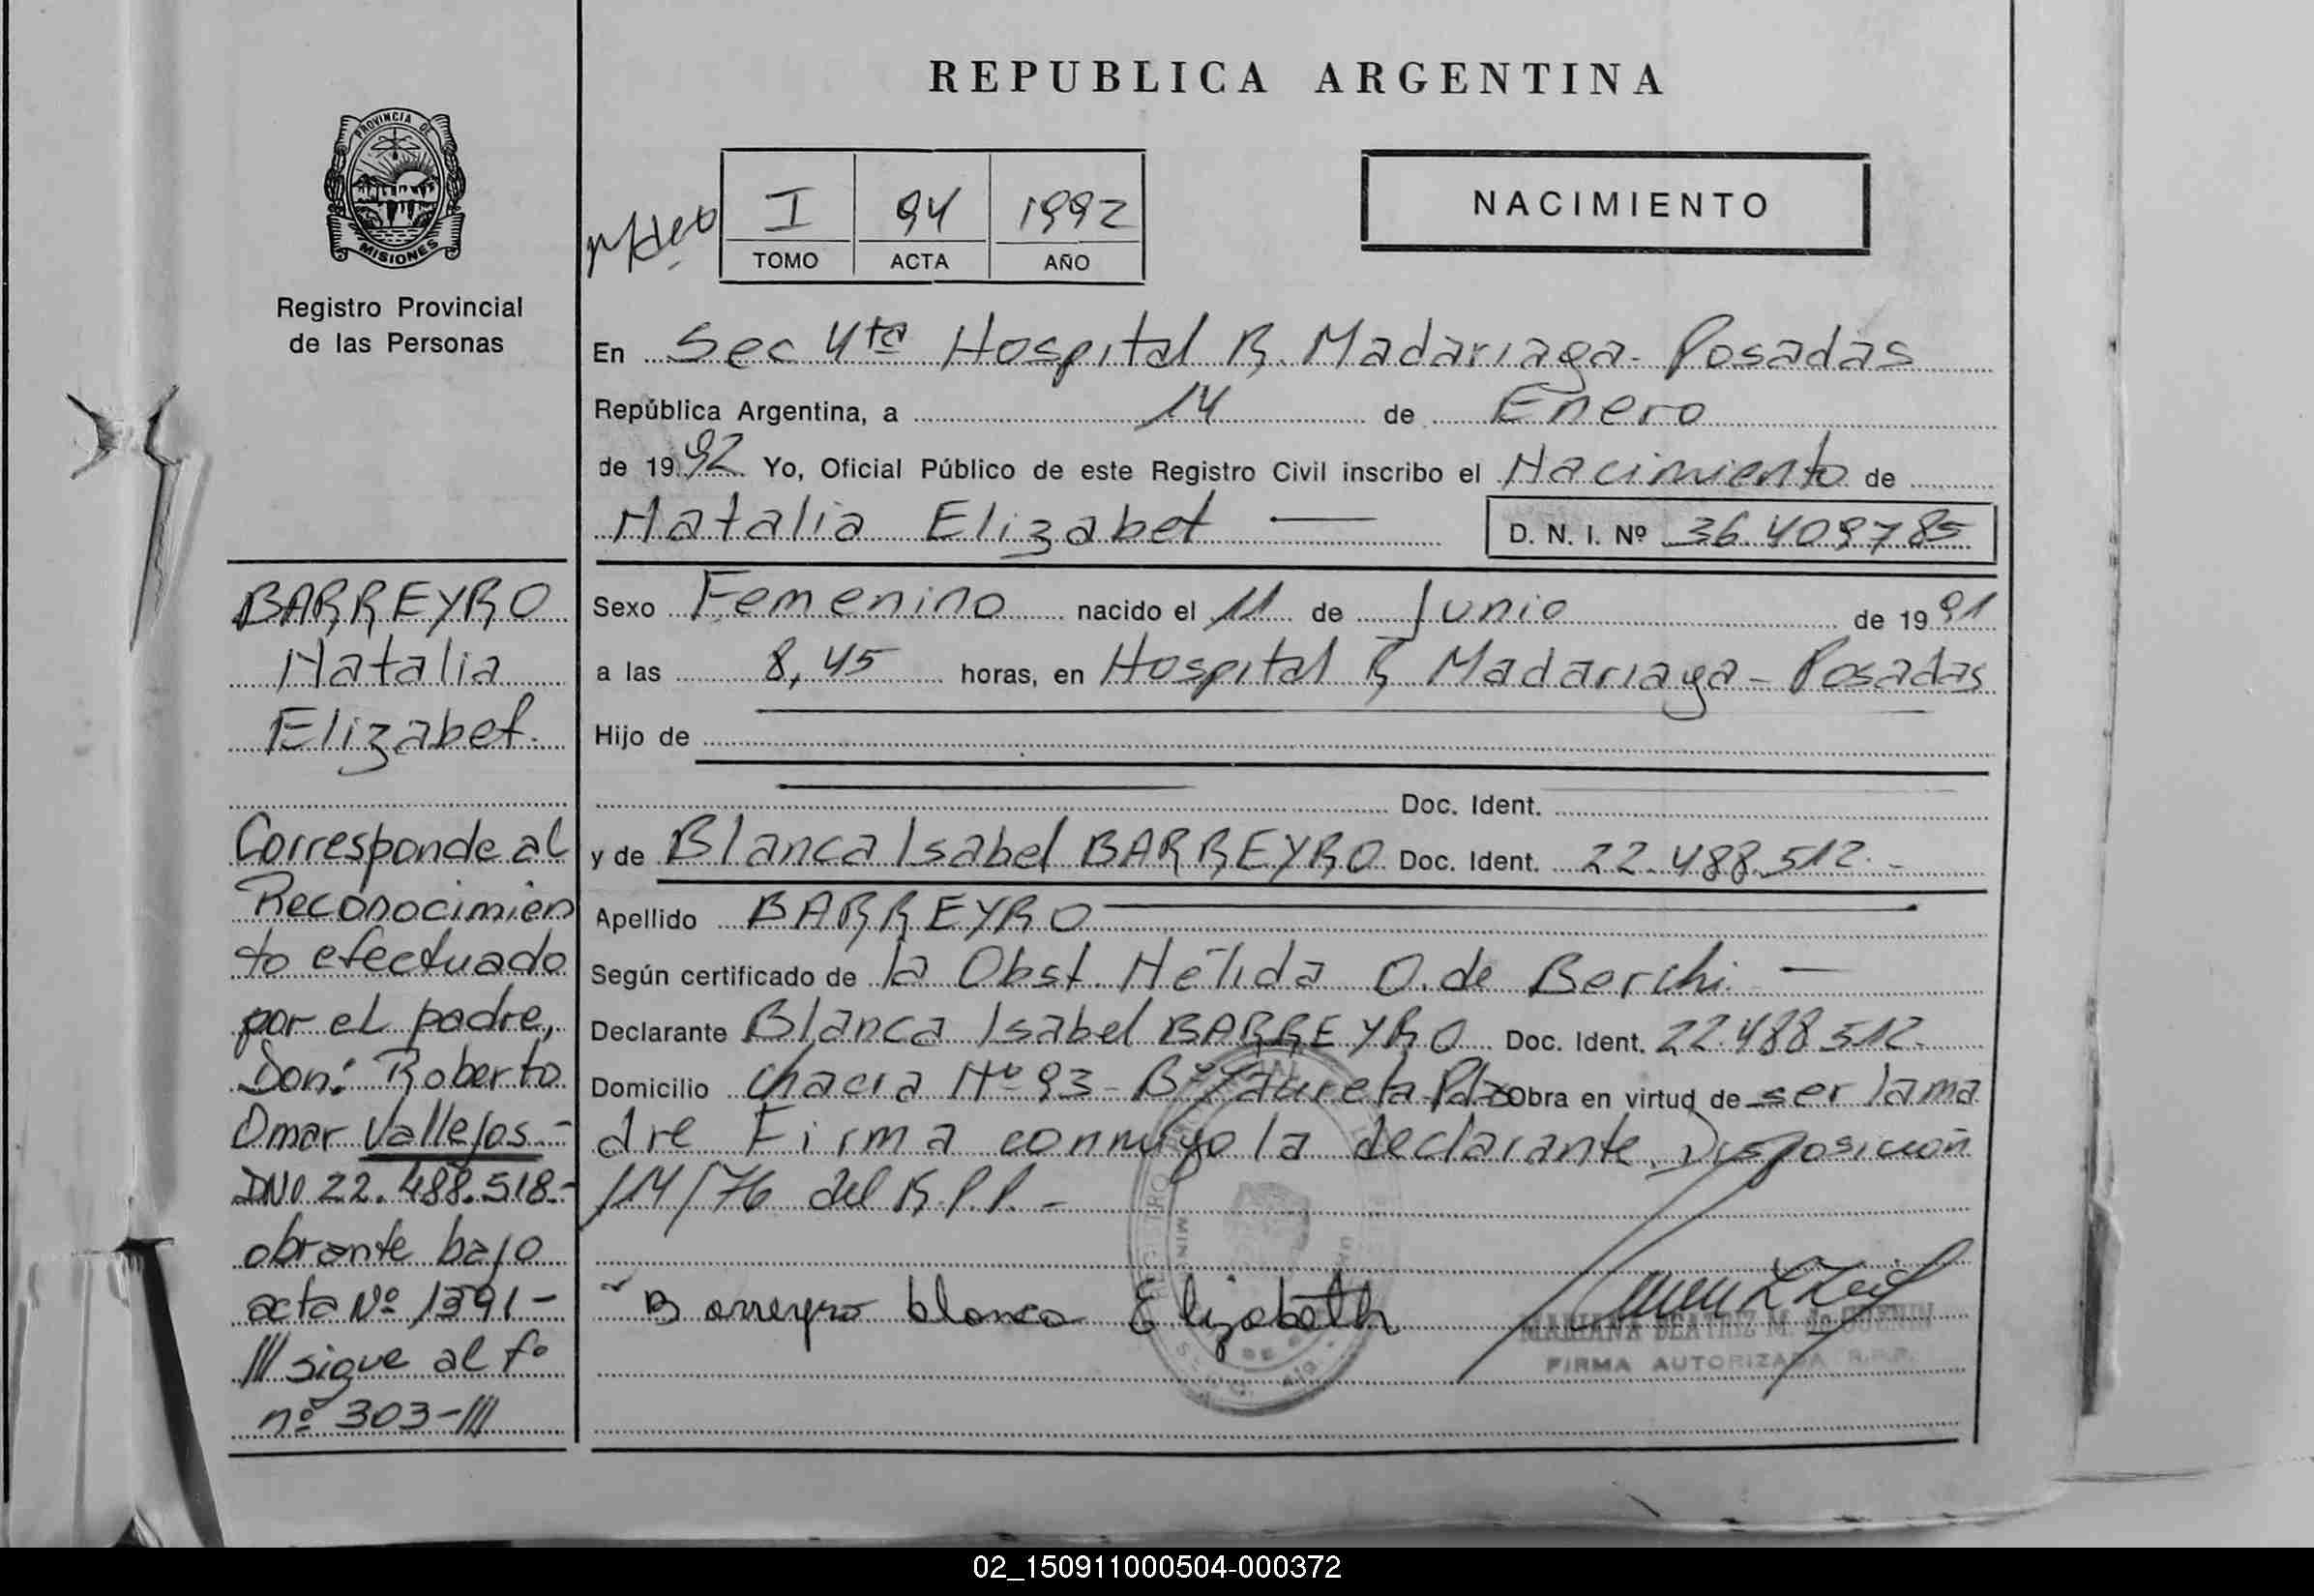 REPUBLICA ARGENTINA
PROVINCIA DE
MISIONES
Registro Provincial
de las Personas
I 94 1992
TOMO ACTA AÑO
NACIMIENTO
En Sec 4ta Hospital R. Madariaga - Posadas
República Argentina, a 14 de Enero
de 1992 Yo, Oficial Público de este Registro Civil inscribo el Nacimiento de
Natalia Elizabet — D. N. I. Nº 36.409785
Sexo Femenino nacido el 11 de Junio de 1991
a las 8,45 horas, en Hospital R Madariaga - Posadas
Hijo de
Doc. Ident.
y de Blanca Isabel BARREYRO Doc. Ident. 22.488.512.-
Apellido BARREYRO
Según certificado de la Obst. Nélida O. de Berchi. —
Declarante Blanca Isabel BARREYRO Doc. Ident. 22.488512.
Domicilio Chacra Nº 93 - Bº Obra en virtud de ser la ma
dre Firma conmigo la declarante. Disposición
114/76 del R.P.P. -
Barreyro blanca Elizabeth
MARIANA BEATRIZ M. de GUENIN
FIRMA AUTORIZADA R.P.P.
BARREYRO
Natalia
Elizabet.
Corresponde al
Reconocimien
to efectuado
por el padre,
Don: Roberto
Omar Vallejos.-
DNI 22.488.518.-
obrante bajo
acta Nº 1391-
/// sigue al fº
nº 303-///
02_150911000504-000372